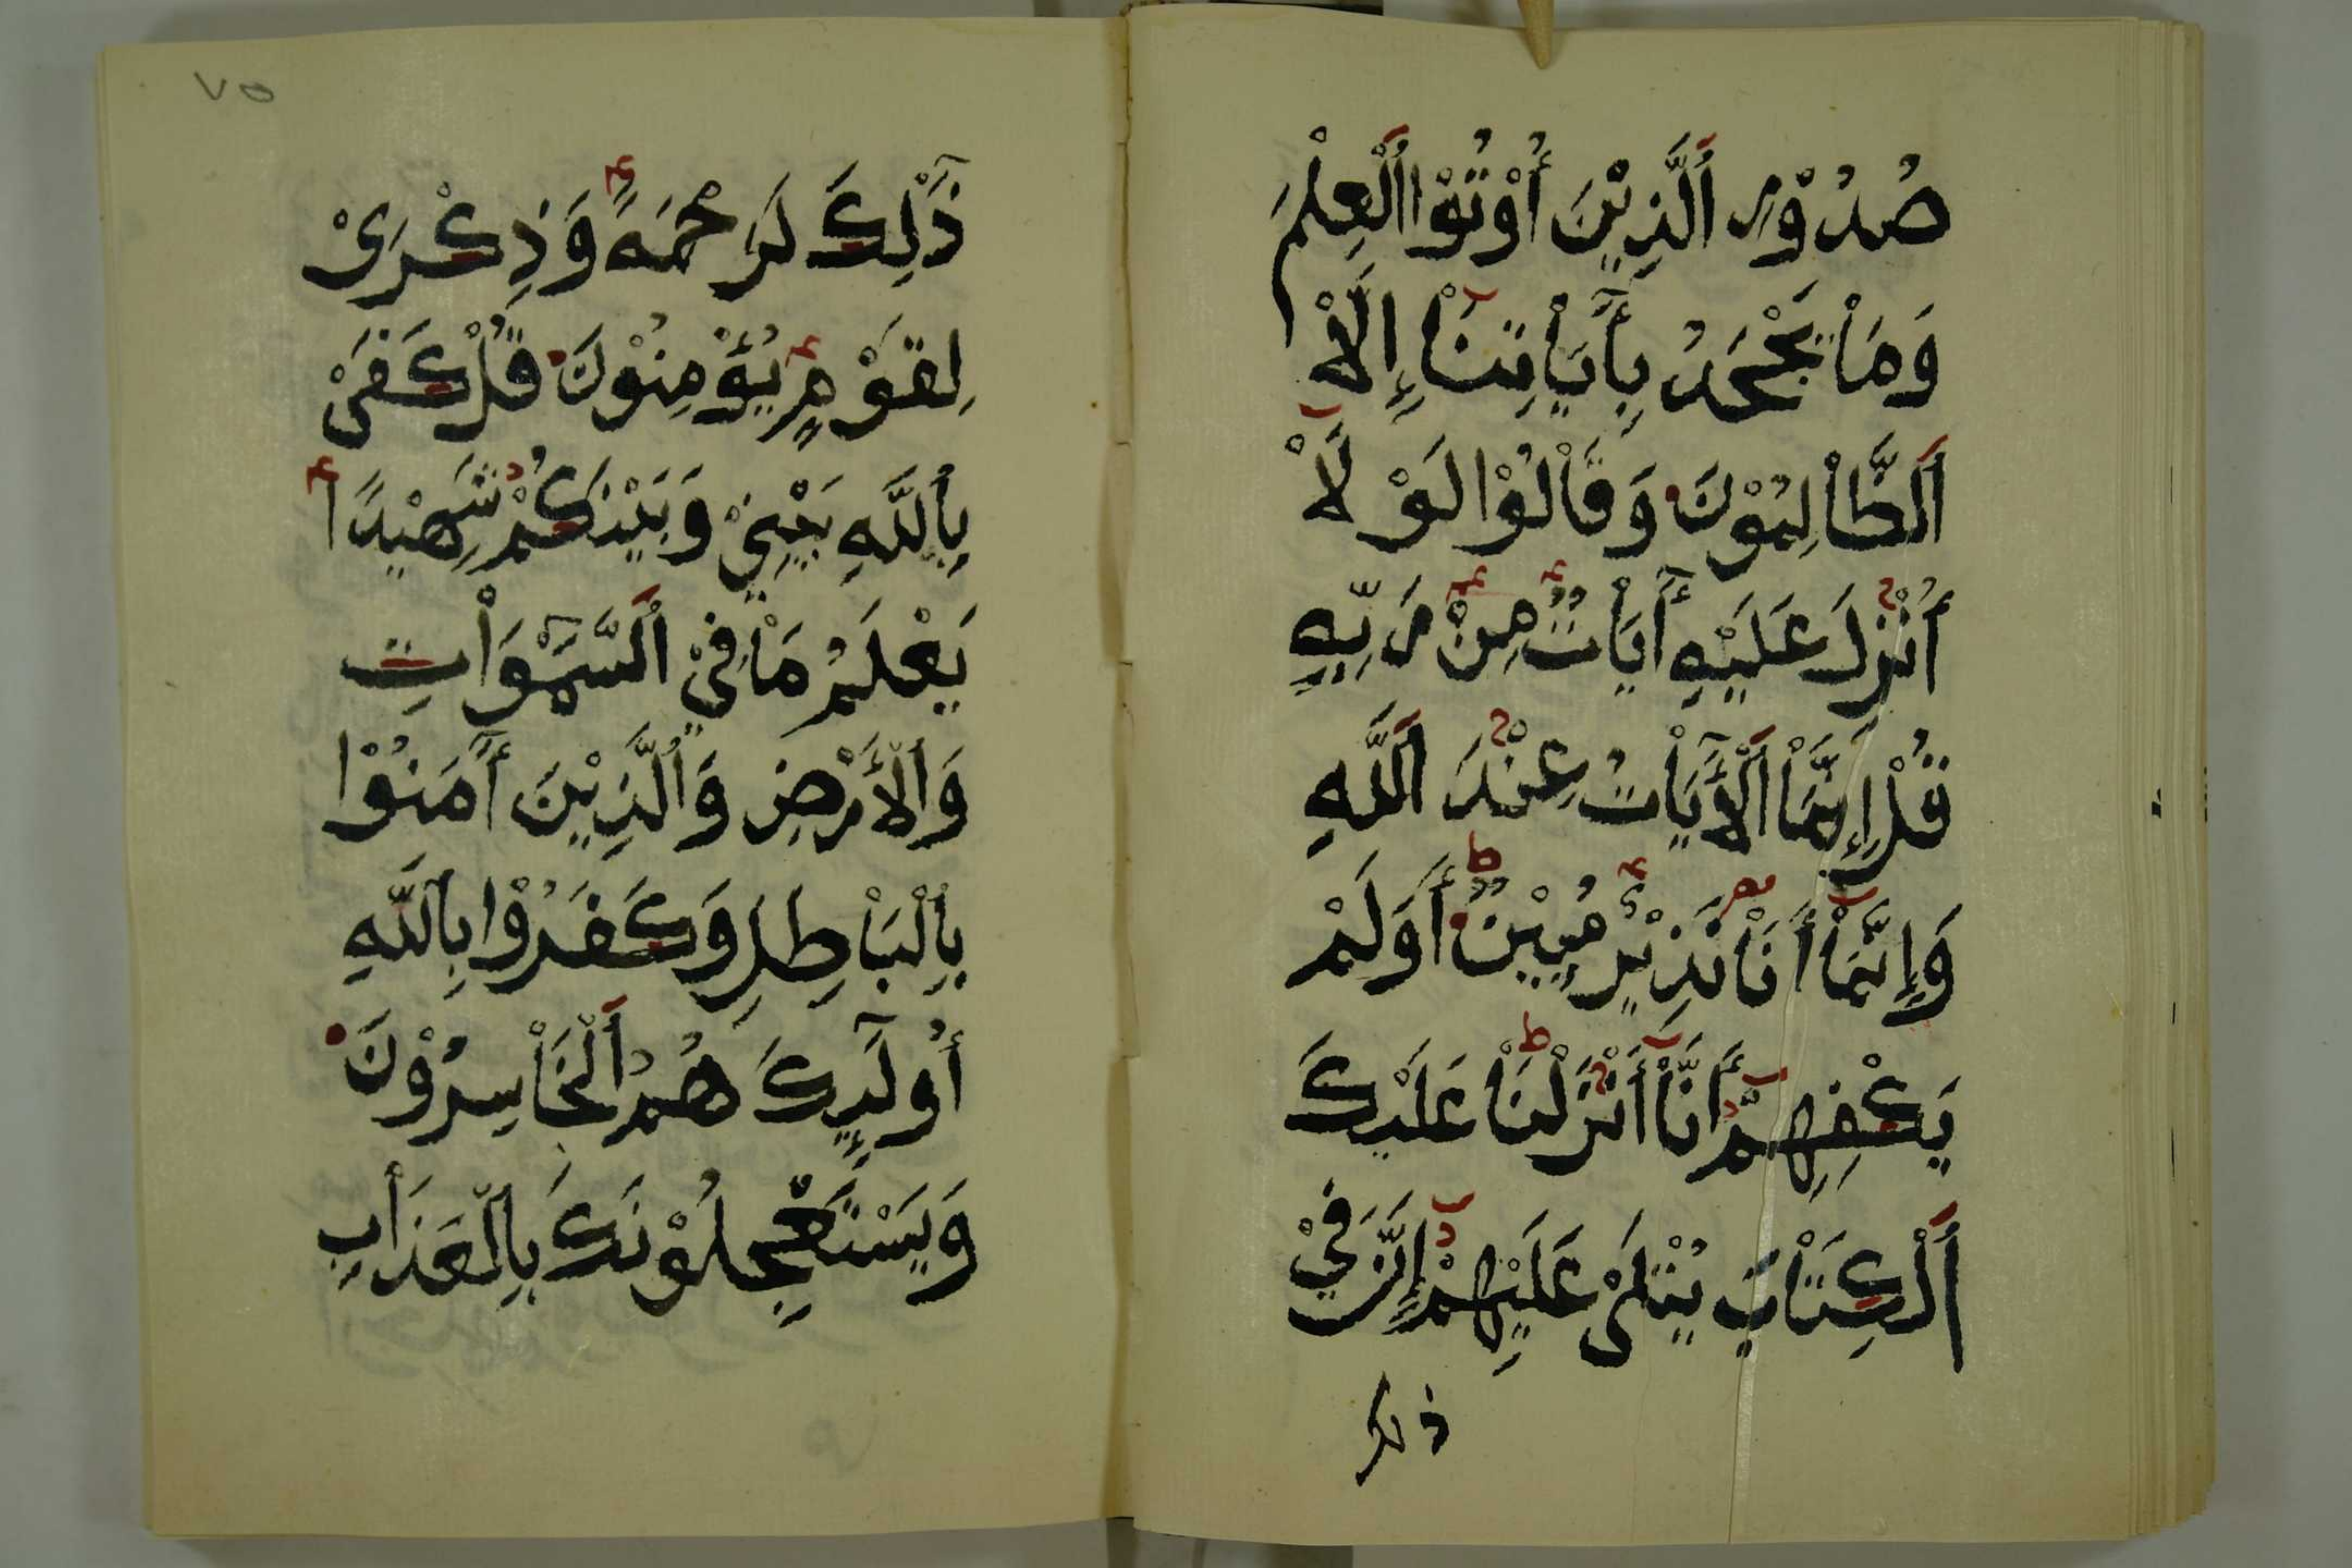 صُدُوْرِ اَلَّذِيْنَ أُوْتُوْا اَلْعِلْمَ
وَمَاْ يَجْحَدُ بِأَيَاْتِنَاْ إِلَّاْ
اَلظَّاْلِمُوْنَ وَقَاْلُوْا لَوْ لَاْ
أُنْزِلَ عَلَيْهِ أَيَاْتٌ مِنْ رَبِّهِ
قُلْ إِنَّمَاْ اَلْأَيَاْتُ عِنْدَ اَللَّهِ
وَإِنَّمَاْ أَنَاْ نَذِيْرٌ مُبِيْنٌ أَوَلَمْ
يَكْفِهِمْ أَنَّاْ أَنْزَلْنَاْ عَلَيْكَ
اَلْكِتَاْبَ يُتْلَىْ عَلَيْهِمْ إِنَّ فِيْ
ذلك
ذَٰلِكَ لَرَحْمَةً وَذِكْرَىْ
لِقَوْمٍ يُؤْمِنُوْنَ قُلْ كَفَىْ
بِاَللَّهِ بَيْنِيْ وَبَيْنَكُمْ شَهِيْدًا
يَعْلَمُ مَاْ فِيْ اَلسَّمَٰوَاْتِ
وَاَلْأَرْضِ وَاَلَّذِيْنَ أَمَنُوْا
بِاَلْبَاْطِلِ وَكَفَرُوْا بِاَللَّهِ
أُولَٰئِكَ هُمُ اَلْخَاْسِرُوْنَ
وَيَسْتَعْجِلُوْنَكَ بِاَلْعَذَاْبِ
٧٥